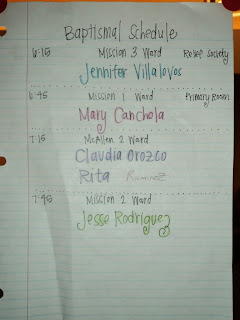 Baptismal Schedule
6:15 Mission 3 Ward Relief Society
Jennifer Villalovos
6:45 Mission 1 Ward Primary Room
Mary Canchola
7:15 McAllen 2 Ward
Claudia Orozco
Rita Ramirez
7:45 Mission 2 Ward
Jesse Rodriguez